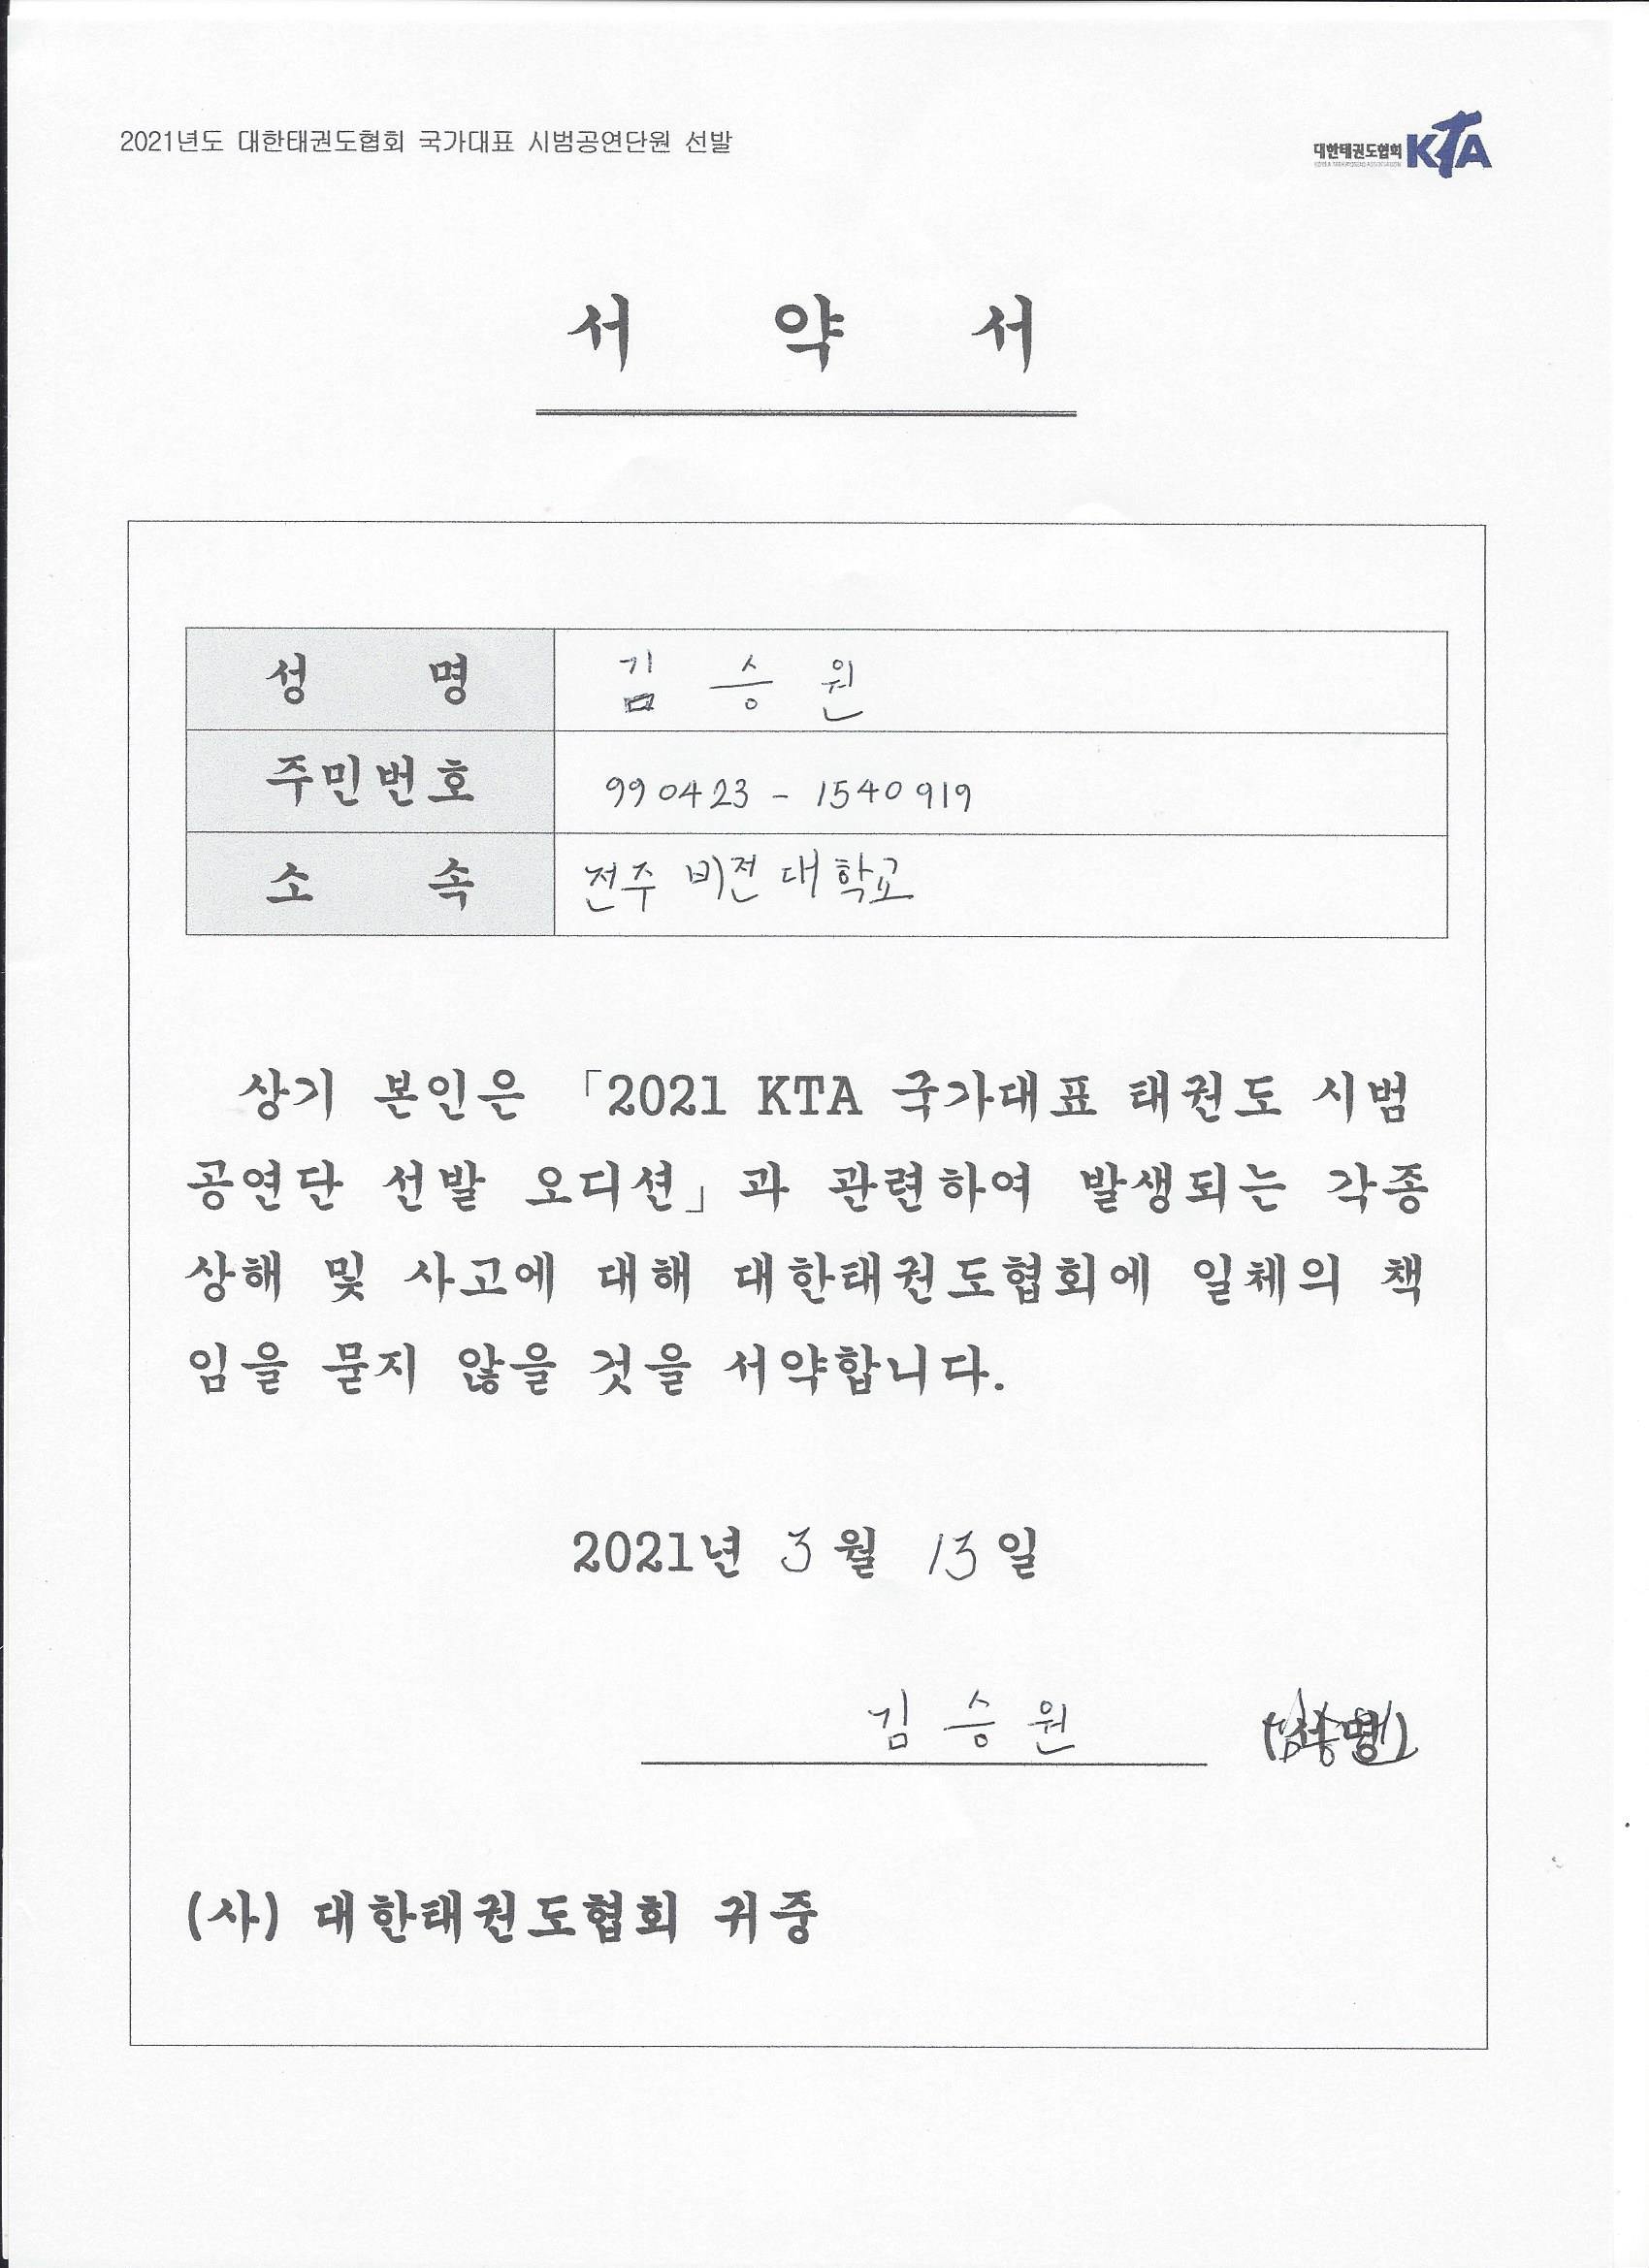 2021년도 대한태권도협회 국가대표 시범공연단원 선발
대한태권도협회 KTA
KOREA TAEKWONDO ASSOCIATION
서 약 서
성 명 김 승 원
주민번호 990423 - 1540919
소 속 전주 비전 대학교
상기 본인은 「2021 KTA 국가대표 태권도 시범
공연단 선발 오디션」과 관련하여 발생되는 각종
상해 및 사고에 대해 대한태권도협회에 일체의 책
임을 묻지 않을 것을 서약합니다.
2021년 3월 13일
김 승 원 (서명)
(사) 대한태권도협회 귀중